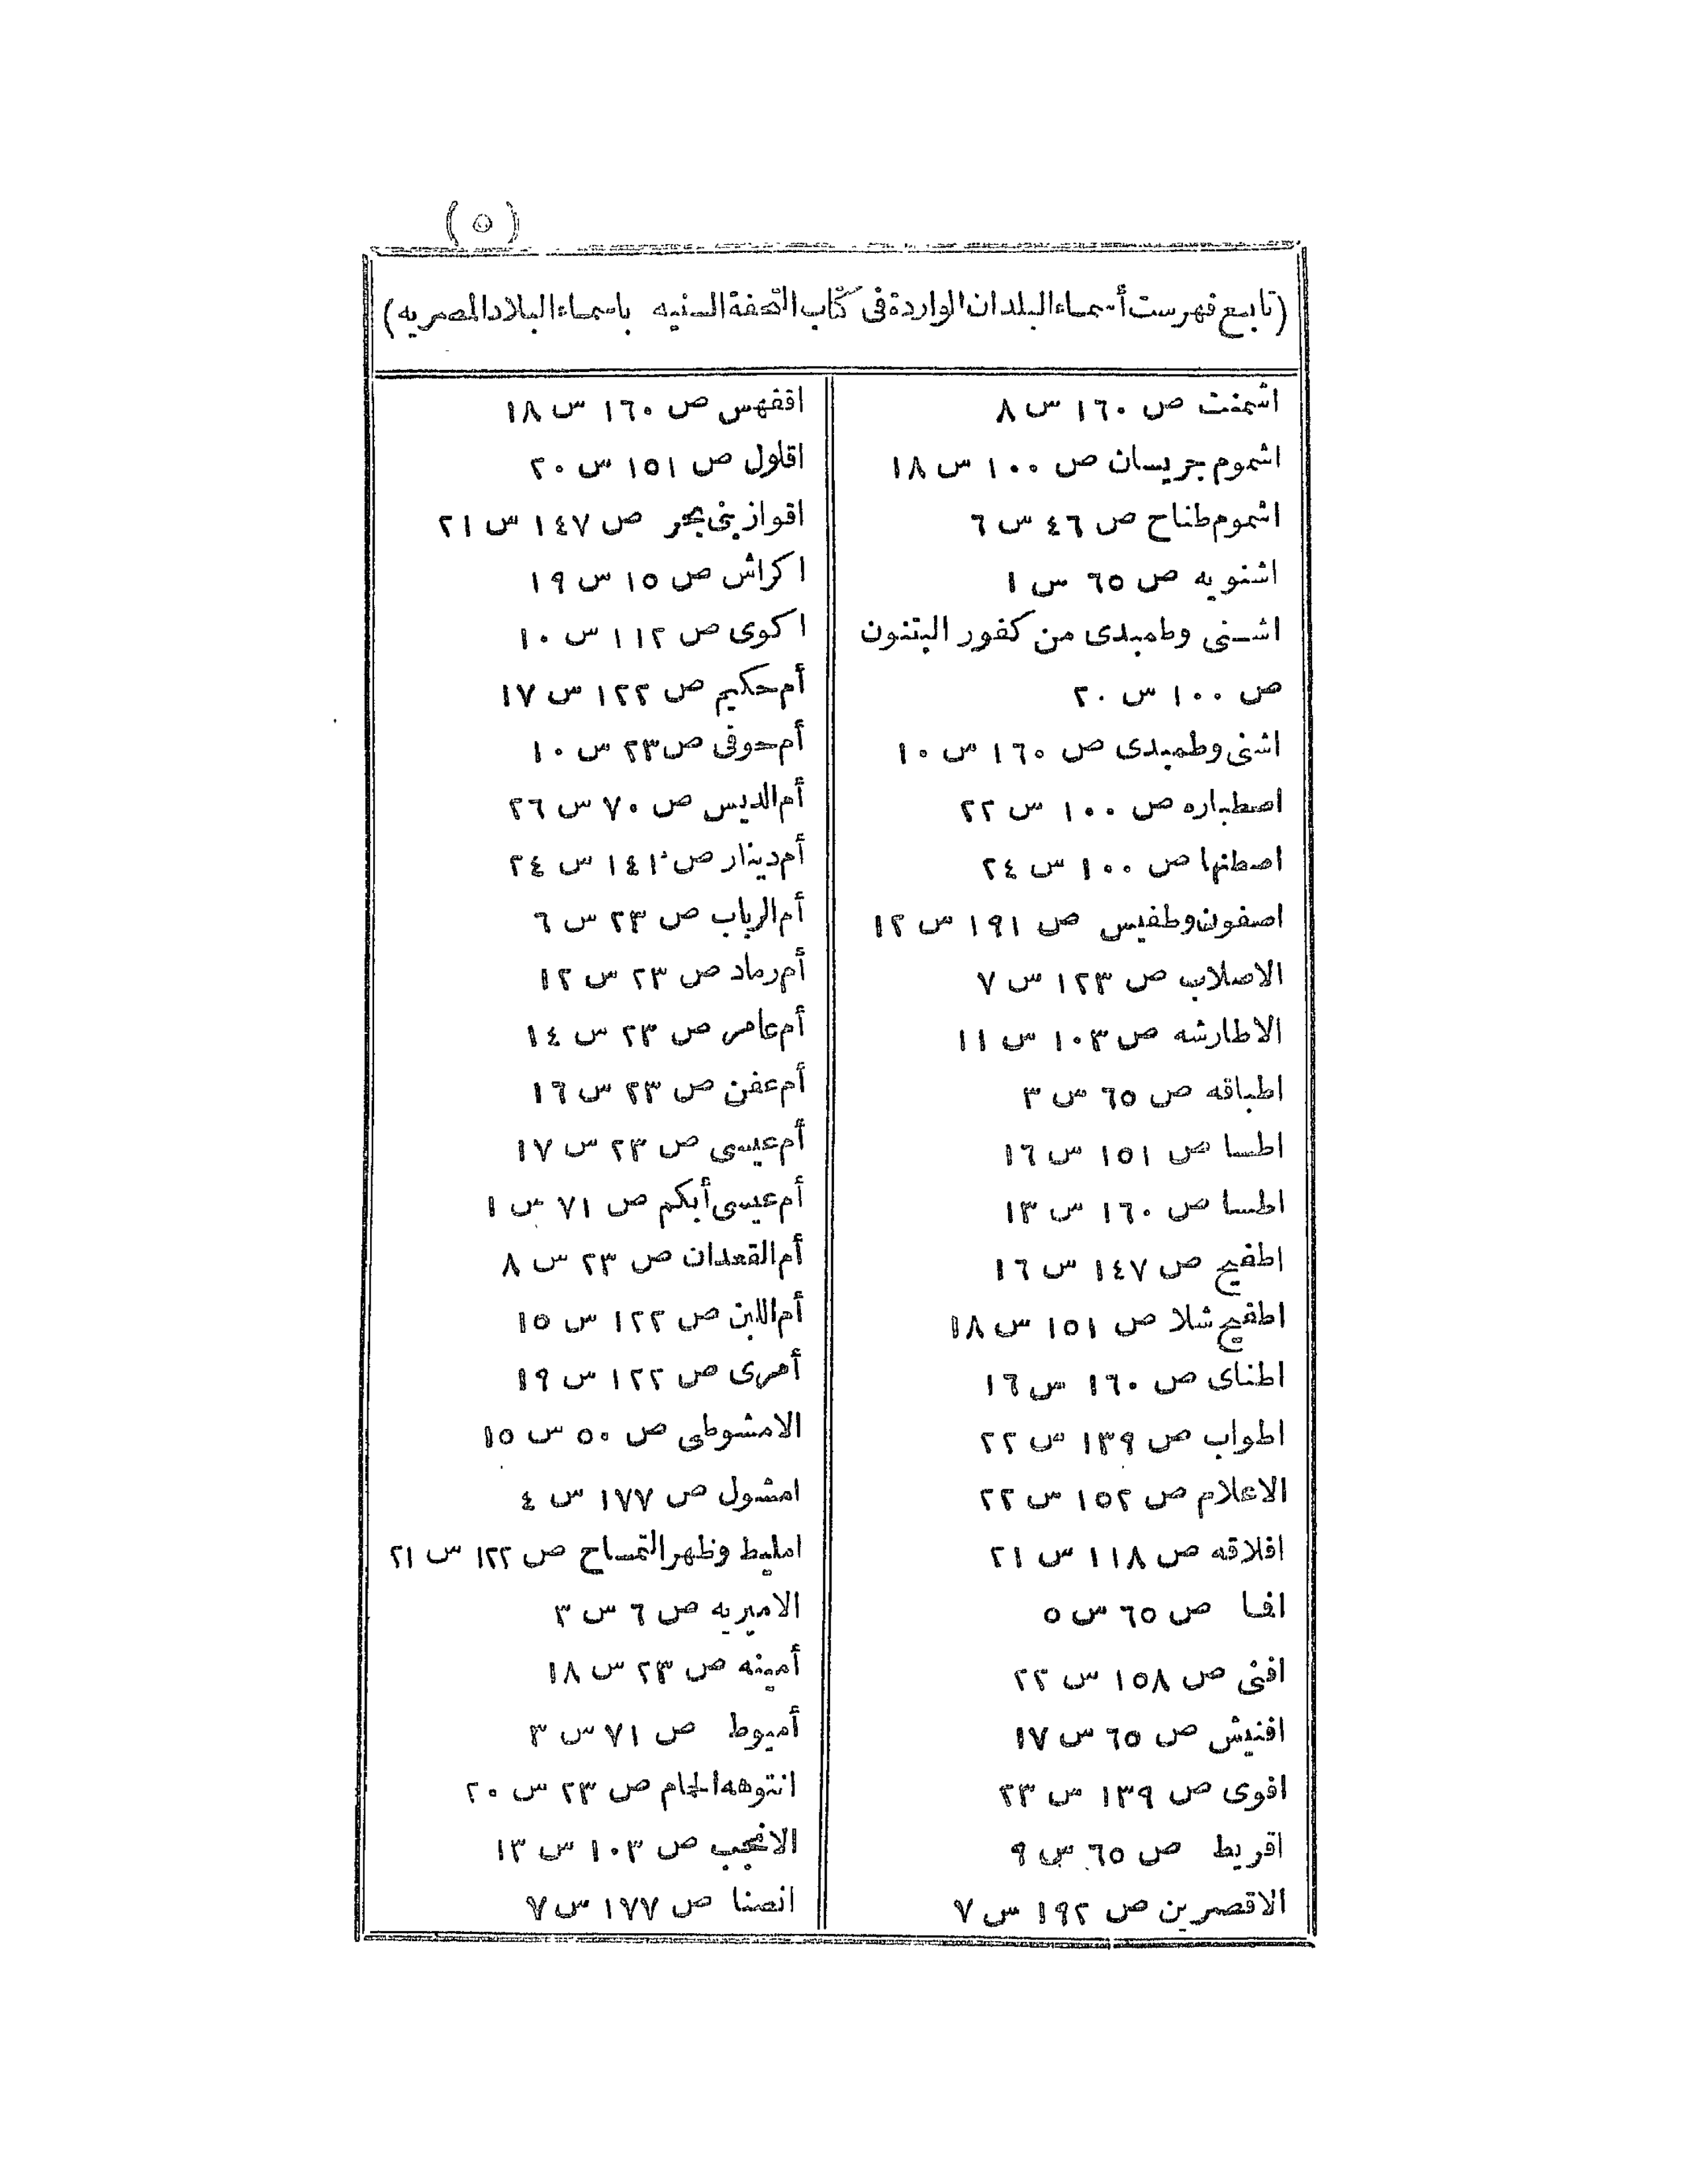 (٥)
(تابع فهرست أسماء البلدان الواردة فى كتاب التحفة السنيه باسماء البلاد المصريه)
اشمنت ص ١٦٠ س ٨
اشموم جريسان ص ١٠٠ س ١٨
اشموم طناح ص ٤٦ س ٦
اشنويه ص ٦٥ س ١
اشنى وطمبدى من كفور البتنون
ص ١٠٠ س ٢٠
اشنى وطمبدى ص ١٦٠ س ١٠
اصطباره ص ١٠٠ س ٢٢
اصطنها ص ١٠٠ س ٢٤
اصفون وطفيس ص ١٩١ س ١٢
الاصلاب ص ١٢٣ س ٧
الاطارشه ص ١٠٣ س ١١
اطباقه ص ٦٥ س ٣
اطسا ص ١٥١ س ١٦
اطسا ص ١٦٠ س ١٣
اطفيح ص ١٤٧ س ١٦
اطفيح شلا ص ١٥١ س ١٨
اطناى ص ١٦٠ س ١٦
اطواب ص ١٣٩ س ٢٢
الاعلام ص ١٥٢ س ٢٢
افلاقه ص ١١٨ س ٢١
افا ص ٦٥ س ٥
افنى ص ١٥٨ س ٢٢
افنيش ص ٦٥ س ١٧
افوى ص ١٣٩ س ٢٣
اقريط ص ٦٥ س ٩
الاقصرين ص ١٩٢ س ٧
اقفهس ص ١٦٠ س ١٨
اقلول ص ١٥١ س ٢٠
اقواز بنى بحر ص ١٤٧ س ٢١
اكراش ص ١٥ س ١٩
اكوى ص ١١٢ س ١٠
أم حكيم ص ١٢٢ س ١٧
أم حوفى ص ٢٣ س ١٠
أم الديس ص ٧٠ س ٢٦
أم دينار ص ١٤١ س ٢٤
أم الرباب ص ٢٣ س ٦
أم رماد ص ٢٣ س ١٢
أم عامر ص ٢٣ س ١٤
أم عفن ص ٢٣ س ١٦
أم عيسى ص ٢٣ س ١٧
أم عيسى أبكم ص ٧١ س ١
أم القعدان ص ٢٣ س ٨
أم اللبن ص ١٢٢ س ١٥
أمرى ص ١٢٢ س ١٩
الامشوطى ص ٥٠ س ١٥
امشول ص ١٧٧ س ٤
امليط وظهر التمساح ص ١٢٢ س ٢١
الاميريه ص ٦ س ٣
أمينه ص ٢٣ س ١٨
أميوط ص ٧١ س ٣
انتوهه الحام ص ٢٣ س ٢٠
الانجب ص ١٠٣ س ١٣
انصنا ص ١٧٧ س ٧